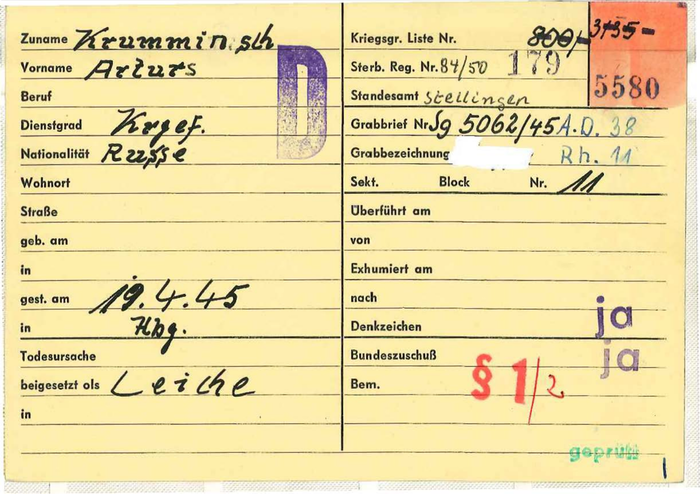 Zuname Krumminsch
Vorname Arturs
Beruf
Dienstgrad Krgef.
Nationalität Russe
Wohnort
Straße
geb. am
in
gest. am 19.4.45
in Hbg.
Todesursache
beigesetzt als Leiche
in
D
Kriegsgr. Liste Nr. 800/- 3735-
Sterb. Reg. Nr. 84/50 179
5580
Standesamt Stellingen
Grabbrief Nr Sg 5062/45 A.D. 38
Grabbezeichnung Rh. 11
Sekt. Block Nr. 11
Überführt am
von
Exhumiert am
nach
Denkzeichen ja
Bundeszuschuß ja
Bem. § 1/2
geprüft
1